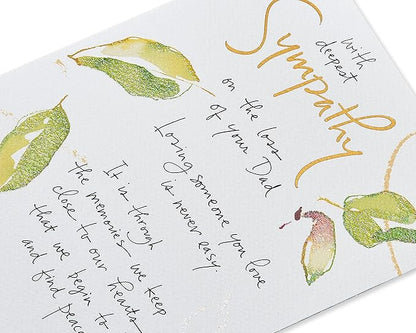 with
deepest
Sympathy
on the loss
of your Dad
Losing someone you love
is never easy.
It is through
the memories we keep
close to our hearts
that we begin to
and find peace